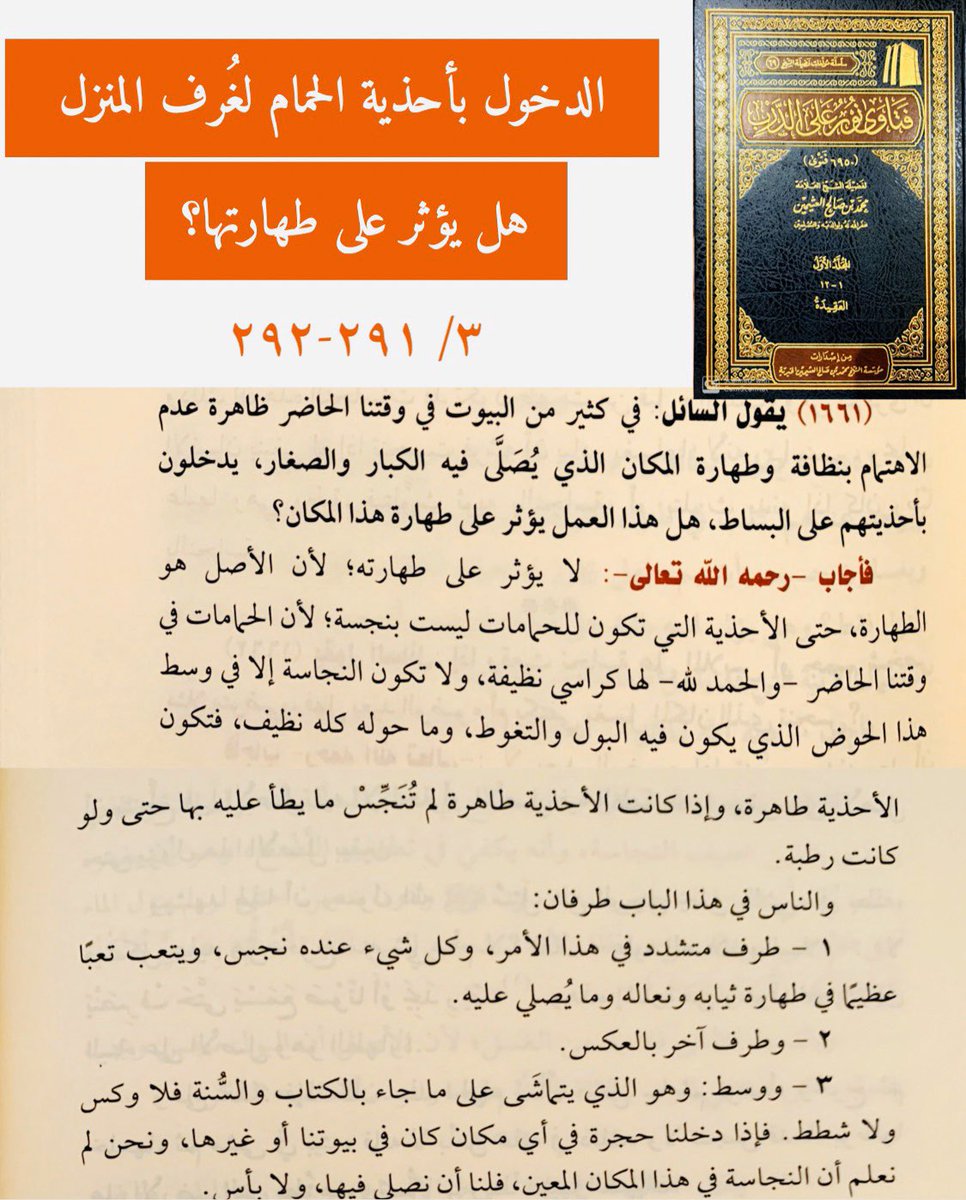 الدخول بأحذية الحمام لغُرف المنزل
هل يؤثر على طهارتها؟
٣/ ٢٩١-٢٩٢
فتاوى نور على الدرب
(٦٩٥٠ فتوى)
لفضيلة الشيخ العلامة
محمد بن صالح العثيمين
غفر الله له ولوالديه وللمسلمين
المجلد الأول
١-١٢
العقيدة
من إصدارات
مؤسسة الشيخ محمد بن صالح العثيمين الخيرية
(١٦٦١) يقول السائل: في كثير من البيوت في وقتنا الحاضر ظاهرة عدم
الاهتمام بنظافة وطهارة المكان الذي يُصَلَّى فيه الكبار والصغار، يدخلون
بأحذيتهم على البساط، هل هذا العمل يؤثر على طهارة هذا المكان؟
فأجاب -رحمه الله تعالى-: لا يؤثر على طهارته؛ لأن الأصل هو
الطهارة، حتى الأحذية التي تكون للحمامات ليست بنجسة؛ لأن الحمامات في
وقتنا الحاضر -والحمد لله- لها كراسي نظيفة، ولا تكون النجاسة إلا في وسط
هذا الحوض الذي يكون فيه البول والتغوط، وما حوله كله نظيف، فتكون
الأحذية طاهرة، وإذا كانت الأحذية طاهرة لم تُنَجِّسْ ما يطأ عليه بها حتى ولو
كانت رطبة.
والناس في هذا الباب طرفان:
١ - طرف متشدد في هذا الأمر، وكل شيء عنده نجس، ويتعب تعبًا
عظيمًا في طهارة ثيابه ونعاله وما يُصلي عليه.
٢ - وطرف آخر بالعكس.
٣ - ووسط: وهو الذي يتماشَى على ما جاء بالكتاب والسُّنة فلا وكس
ولا شطط. فإذا دخلنا حجرة في أي مكان كان في بيوتنا أو غيرها، ونحن لم
نعلم أن النجاسة في هذا المكان المعين، فلنا أن نصلي فيها، ولا بأس.